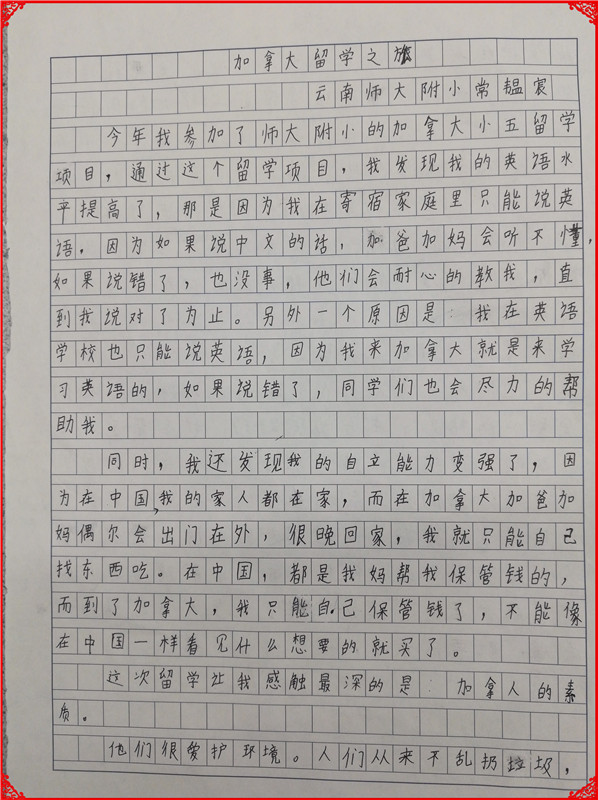 加拿大留学之旅
云南师大附小常韫宸
今年我参加了师大附小的加拿大小五留学
项目，通过这个留学项目，我发现我的英语水
平提高了，那是因为我在寄宿家庭里只能说英
语，因为如果说中文的话，加爸加妈会听不懂，
如果说错了，也没事，他们会耐心的教我，直
到我说对了为止。另外一个原因是：我在英语
学校也只能说英语，因为我来加拿大就是来学
习英语的，如果说错了，同学们也会尽力的帮
助我。
同时，我还发现我的自立能力变强了，因
为在中国，我的家人都在家，而在加拿大加爸加
妈偶尔会出门在外，很晚回家，我就只能自己
找东西吃。在中国，都是我妈帮我保管钱的，
而到了加拿大，我只能自己保管钱了，不能像
在中国一样看见什么想要的就买了。
这次留学让我感触最深的是：加拿人的素
质。
他们很爱护环境。人们从来不乱扔垃圾，